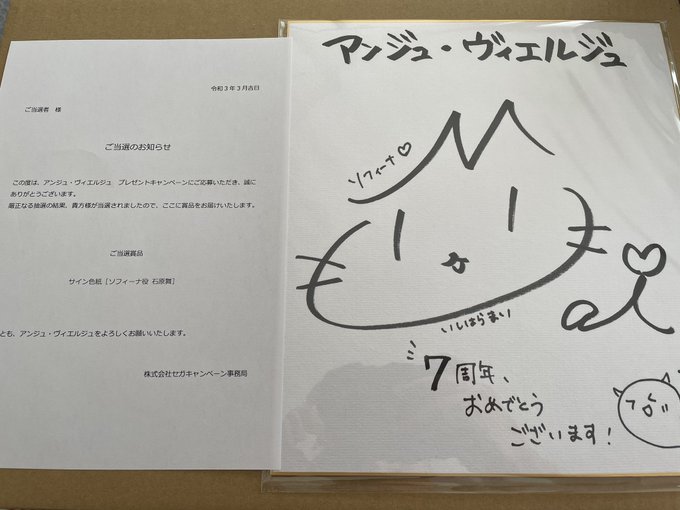 令和3年3月吉日
ご当選者 様
ご当選のお知らせ
この度は、アンジュ・ヴィエルジュ プレゼントキャンペーンにご応募いただき、誠に
ありがとうございます。
厳正なる抽選の結果、貴方様が当選されましたので、ここに賞品をお届けいたします。
ご当選賞品
サイン色紙 [ソフィーナ役 石原舞]
とも、アンジュ・ヴィエルジュをよろしくお願いいたします。
株式会社セガキャンペーン事務局
アンジュ・ヴィエルジュ
ソフィーナ♡
いしはらまい
7周年、
おめでとう
ございます!